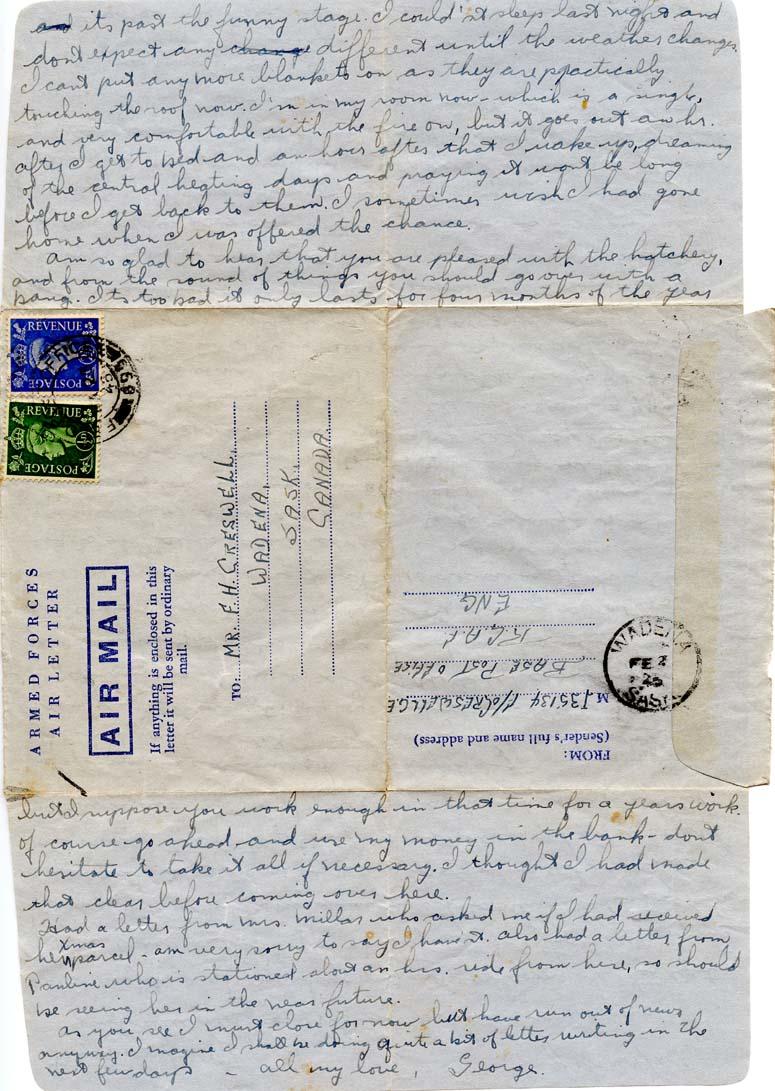 and its past the funny stage. I could'nt sleep last night and
dont expect any change different until the weather changes.
I cant put any more blankets on as they are practically
touching the roof now. I'm in my room now - which is a single,
and very comfortable with the fire on, but it goes out an hr.
after I get to bed and an hour after that I wake up, dreaming
of the central heating days and praying it wont be long
before I get back to them. I sometimes wish I had gone
home when I was offered the chance.
am so glad to hear that you are pleased with the hatchery,
and from the sound of things you should go over with a
bang. Its too bad it only lasts for four months of the year
REVENUE
POSTAGE
REVENUE
POSTAGE
ARMED FORCES
AIR LETTER
AIR MAIL
If anything is enclosed in this
letter it will be sent by ordinary
mail.
TO: MR. F. H. CRESWELL,
WADENA,
SASK,
CANADA
FROM:
(Sender's full name and address)
J35134 F/O CRESWELL G.E
BASE POST OFFICE
R.C.A.F
ENG
WADENA
FE 2
SASK
but I suppose you work enough in that time for a years work.
Of course go ahead and use my money in the bank - dont
hesitate to take it all if necessary. I thought I had made
that clear before coming over here.
Had a letter from Mrs. Millar who asked me if I had received
her Xmas parcel - am very sorry to say I havent. Also had a letter from
Pauline who is stationed about an hrs. ride from here, so should
be seeing her in the near future.
As you see I must close for now but have run out of news
anyway. I imagine I shall be doing quite a bit of letter writing in the
next few days - all my love, George.